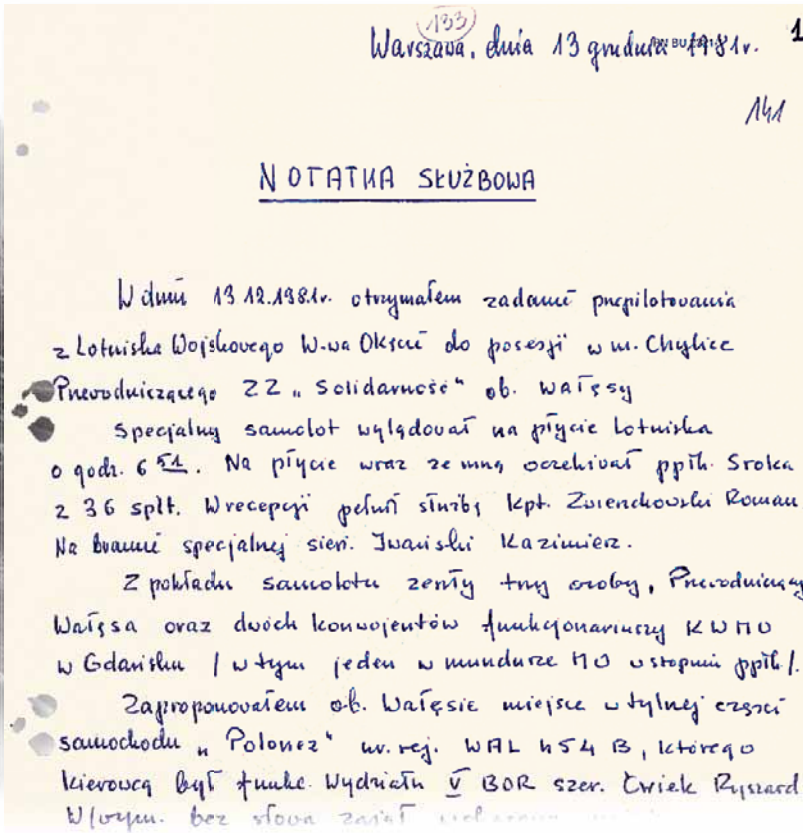 133
Warszawa, dnia 13 grudnia 1981r.
1
141
NOTATKA SŁUŻBOWA
W dniu 13.12.1981r. otrzymałem zadanie przepilotowania
z Lotniska Wojskowego W-wa Okęcie do posesji w m. Chylice
Przewodniczącego ZZ „Solidarność" ob. Wałęsy
Specjalny samolot wylądował na płycie Lotniska
o godz. 6 51. Na płycie wraz ze mną oczekiwał ppłk. Sroka
z 36 splt. W recepcji pełnił służbę kpt. Zwierzchowski Roman
Na bramie specjalnej sierż. Iwański Kazimierz.
Z pokładu samolotu zeszły trzy osoby, Przewodniczący
Wałęsa oraz dwóch konwojentów funkcjonariuszy KWMO
w Gdańsku / w tym jeden w mundurze MO w stopniu ppłk/.
Zaproponowałem ob. Wałęsie miejsce w tylnej części
samochodu „Polonez" nr. rej. WAL 454 B, którego
kierowcą był funkc. Wydziału V BOR szer. Ćwiek Ryszard
W/wym. bez słowa zajął